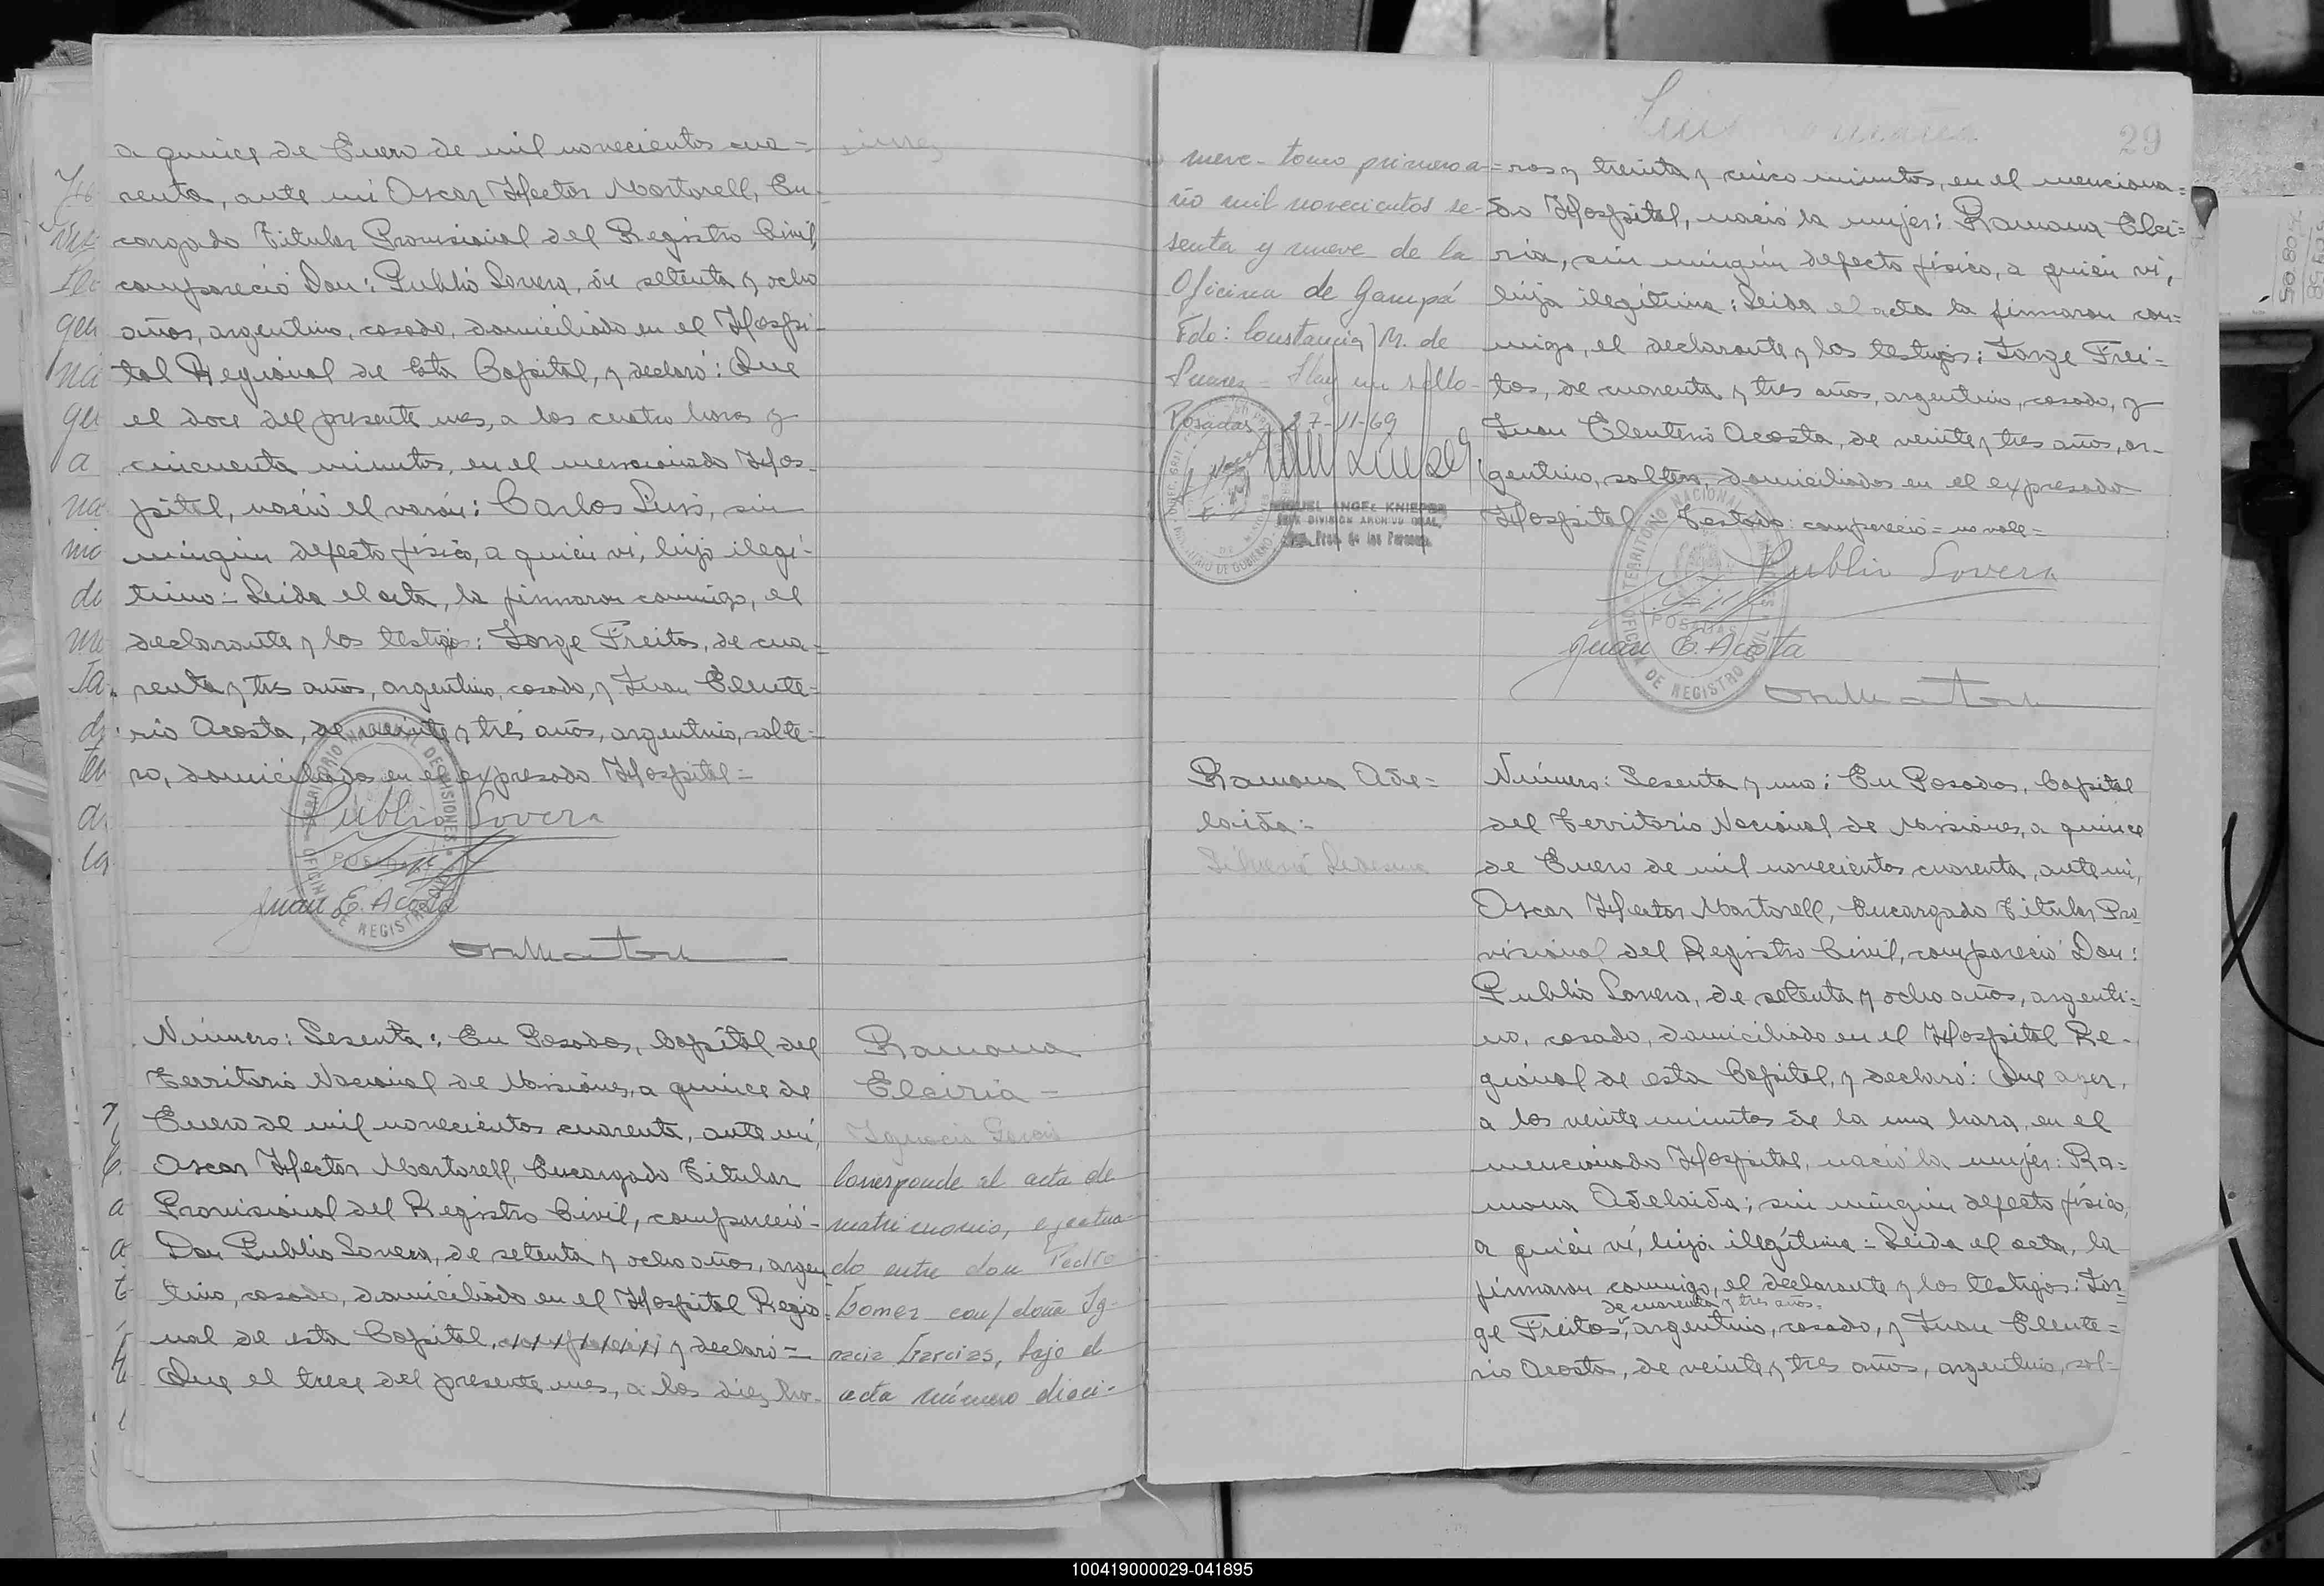 a quince de Enero de mil novecientos cua=
renta, ante mi Oscar Hector Martorell, En-
cargado Titular Provisicial del Registro Civil,
compareció Don: Publio Lovera, de setenta y ocho
años, argentino, casado, domiciliado en el Hospi-
tal Regional de esta Capital, y declaró: Que
el doce del presente mes, a las cuatro horas y
cincuenta minutos, en el mencionado Hos-
pital, nació el varón: Carlos Luis, sin
ningún defecto físico, a quién vi, hijo ilegí-
timo: Leida el acta, la firmaron conmigo, el
declarante y los testigos: Jorge Freitas, de cua=
renta y tres años, argentino, casado, y Juan Eleute=
rio Acosta, de veinte y tres años, argentino, solte=
ro, domiciliados en el expresado Hospital=
Publio Lovera
Juan E. Acosta
TERRITORIO NACIONAL DE MISIONES
OFICINA DE REGISTRO CIVIL
POSADAS
Número: Sesenta: En Posadas, Capital del
Territorio Nacional de Misiones, a quince de
Enero de mil novecientos cuarenta, ante mi,
Oscar Hector Martorell, Encargado Titular
Provisional del Registro Civil, compareció-
Don Publio Lovera, de setenta y ocho años, argen
tino, casado, domiciliado en el Hospital Regio
nal de esta Capital, y declaró=
Que el trece del presente mes, a las diez ho-
Ramona
Elciria-
Ignacia Garcia
Corresponde al acta de
matrimonio, efectua-
do entre don Pedro
Gomez con/doña Ig-
nacia Garcias, bajo el
acta número dieci-
29
nueve- tomo primero a-
ño mil novecientos se-
senta y nueve de la
Oficina de Garupá
Fdo: Constancia M. de
Suarez- Hay un sello-
Posadas 27-11-69
MIGUEL ANGEL KNIEPER
JEFE DIVISION ARCHIVO GRAL.
Prov. de las Personas
=ras y treinta y cinco minutos, en el menciona=
do Hospital, nació la mujer: Ramona Elci=
ria, sin ningún defecto físico, a quién vi,
hija ilegítima: Leida el acta la firmaron con=
migo, el declarante y los testigos: Jorge Frei=
tas, de cuarenta y tres años, argentino, casado, y
Juan Eleuterio Acosta, de veinte y tres años, ar-
gentino, soltero, domiciliados en el expresado
Hospital Testado: compareció= no vale=
Publio Lovera
Juan E. Acosta
TERRITORIO NACIONAL DE MISIONES
OFICINA DE REGISTRO CIVIL
POSADAS
Ramona Ade=
laida:
Silveria Ledesma
Número: Sesenta y uno: En Posadas, Capital
del Territorio Nacional de Misiones, a quince
de Enero de mil novecientos cuarenta, ante mi,
Oscar Hector Martorell, Encargado Titular Pro
visional del Registro Civil, compareció Don:
Publio Lovera, de setenta y ocho años, argenti=
no, casado, domiciliado en el Hospital Re-
gional de esta Capital, y declaró: Que ayer,
a los veinte minutos de la una hora, en el
mencionado Hospital, nació la mujer: Ra=
mona Adelaida; sin ningún defecto físico,
a quién vi, hija ilegítima= Leida el acta, la
firmaron conmigo, el declarante y los testigos: Jor=
de cuarenta y tres años.
ge Freitas, argentino, casado, y Juan Eleute=
rio Acosta, de veinte y tres años, argentino, sol=
100419000029-041895